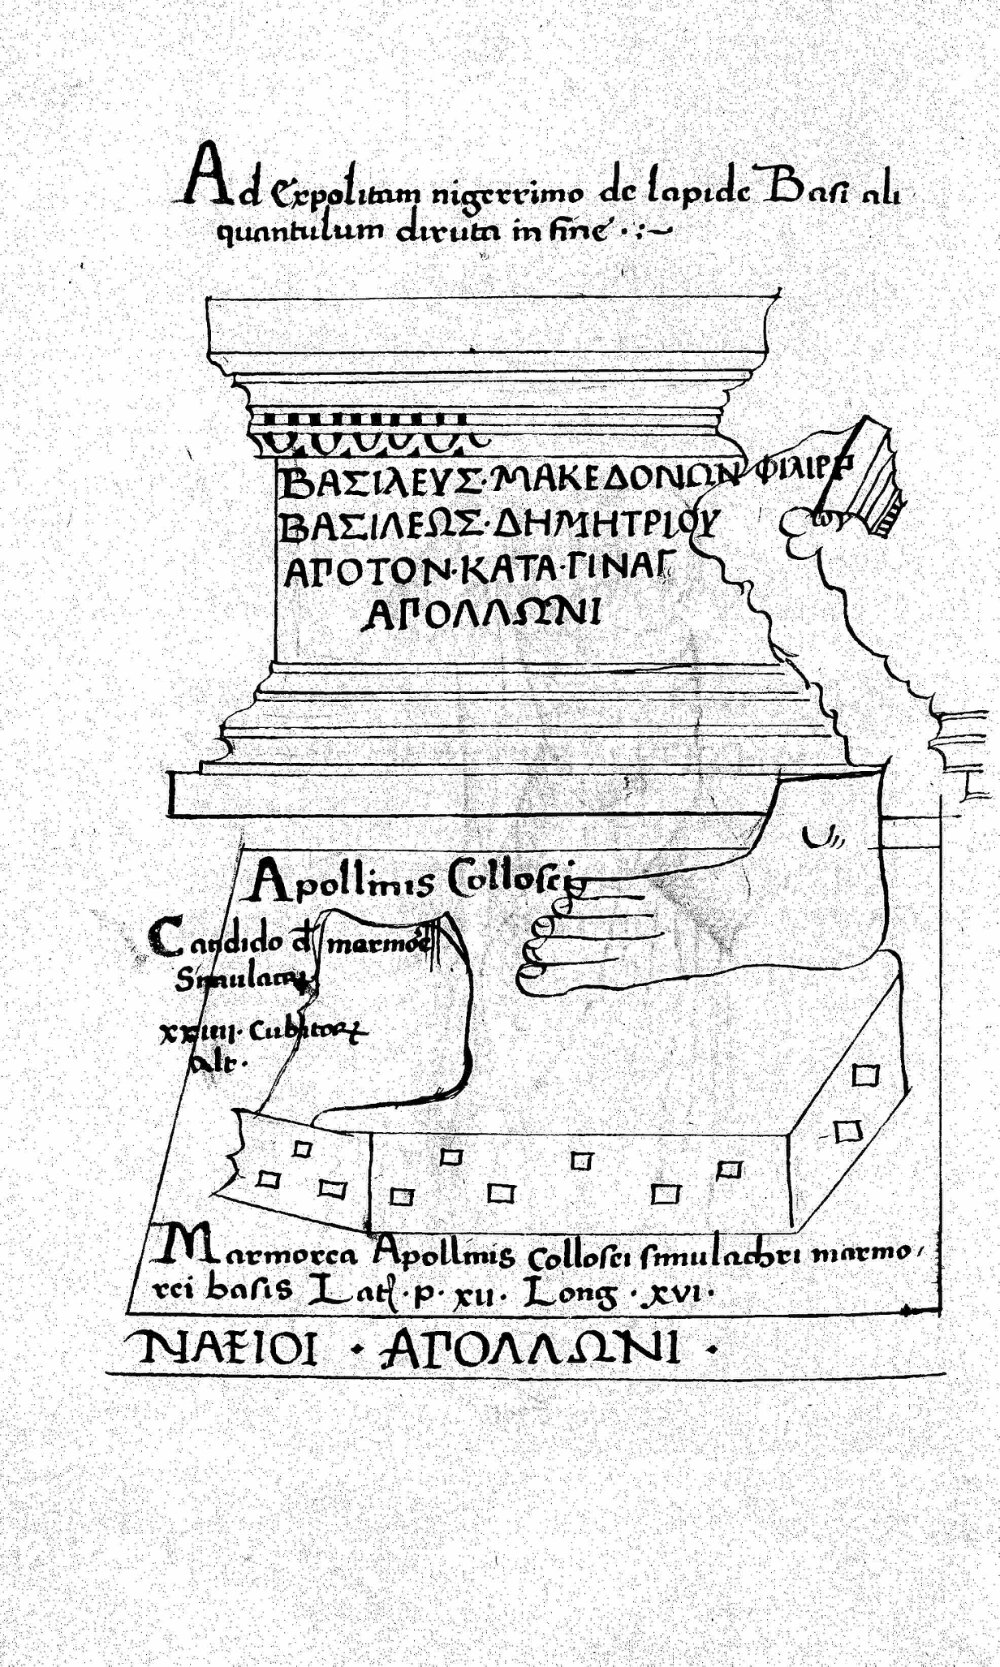 Ad Expolitam nigerrimo de lapide Basi ali
quantulum diruta in fine
ΒΑΣΙΛΕΥΣ·ΜΑΚΕΔΟΝΩΝ ΦΙΛΙΡΡ
ΒΑΣΙΛΕΩΣ·ΔΗΜΗΤΡΙΟΥ ωγ
ΑΓΟΤΟΝ·ΚΑΤΑ·ΓΙΝΑΓ
ΑΓΟΛΛΩΝΙ
Apollinis Collosei
Candido đ marmóe
xxiiii· Cubitoꝝ
alt·
Marmorea Apollinis Collosei simulachri marmo
rei basis Lat·p·xii· Long·xvi·
ΝΑΞΙΟΙ · ΑΓΟΛΛΩΝΙ ·